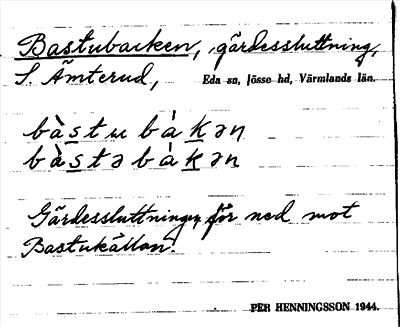 Bastubacken, gärdessluttning,
S. Ämterud, Eda sn, Jösse hd, Värmlands län.
bàstu bàkən
bàstə bàkən
Gärdessluttningen för ned mot
Bastukällan.
PER HENNINGSSON 1944.